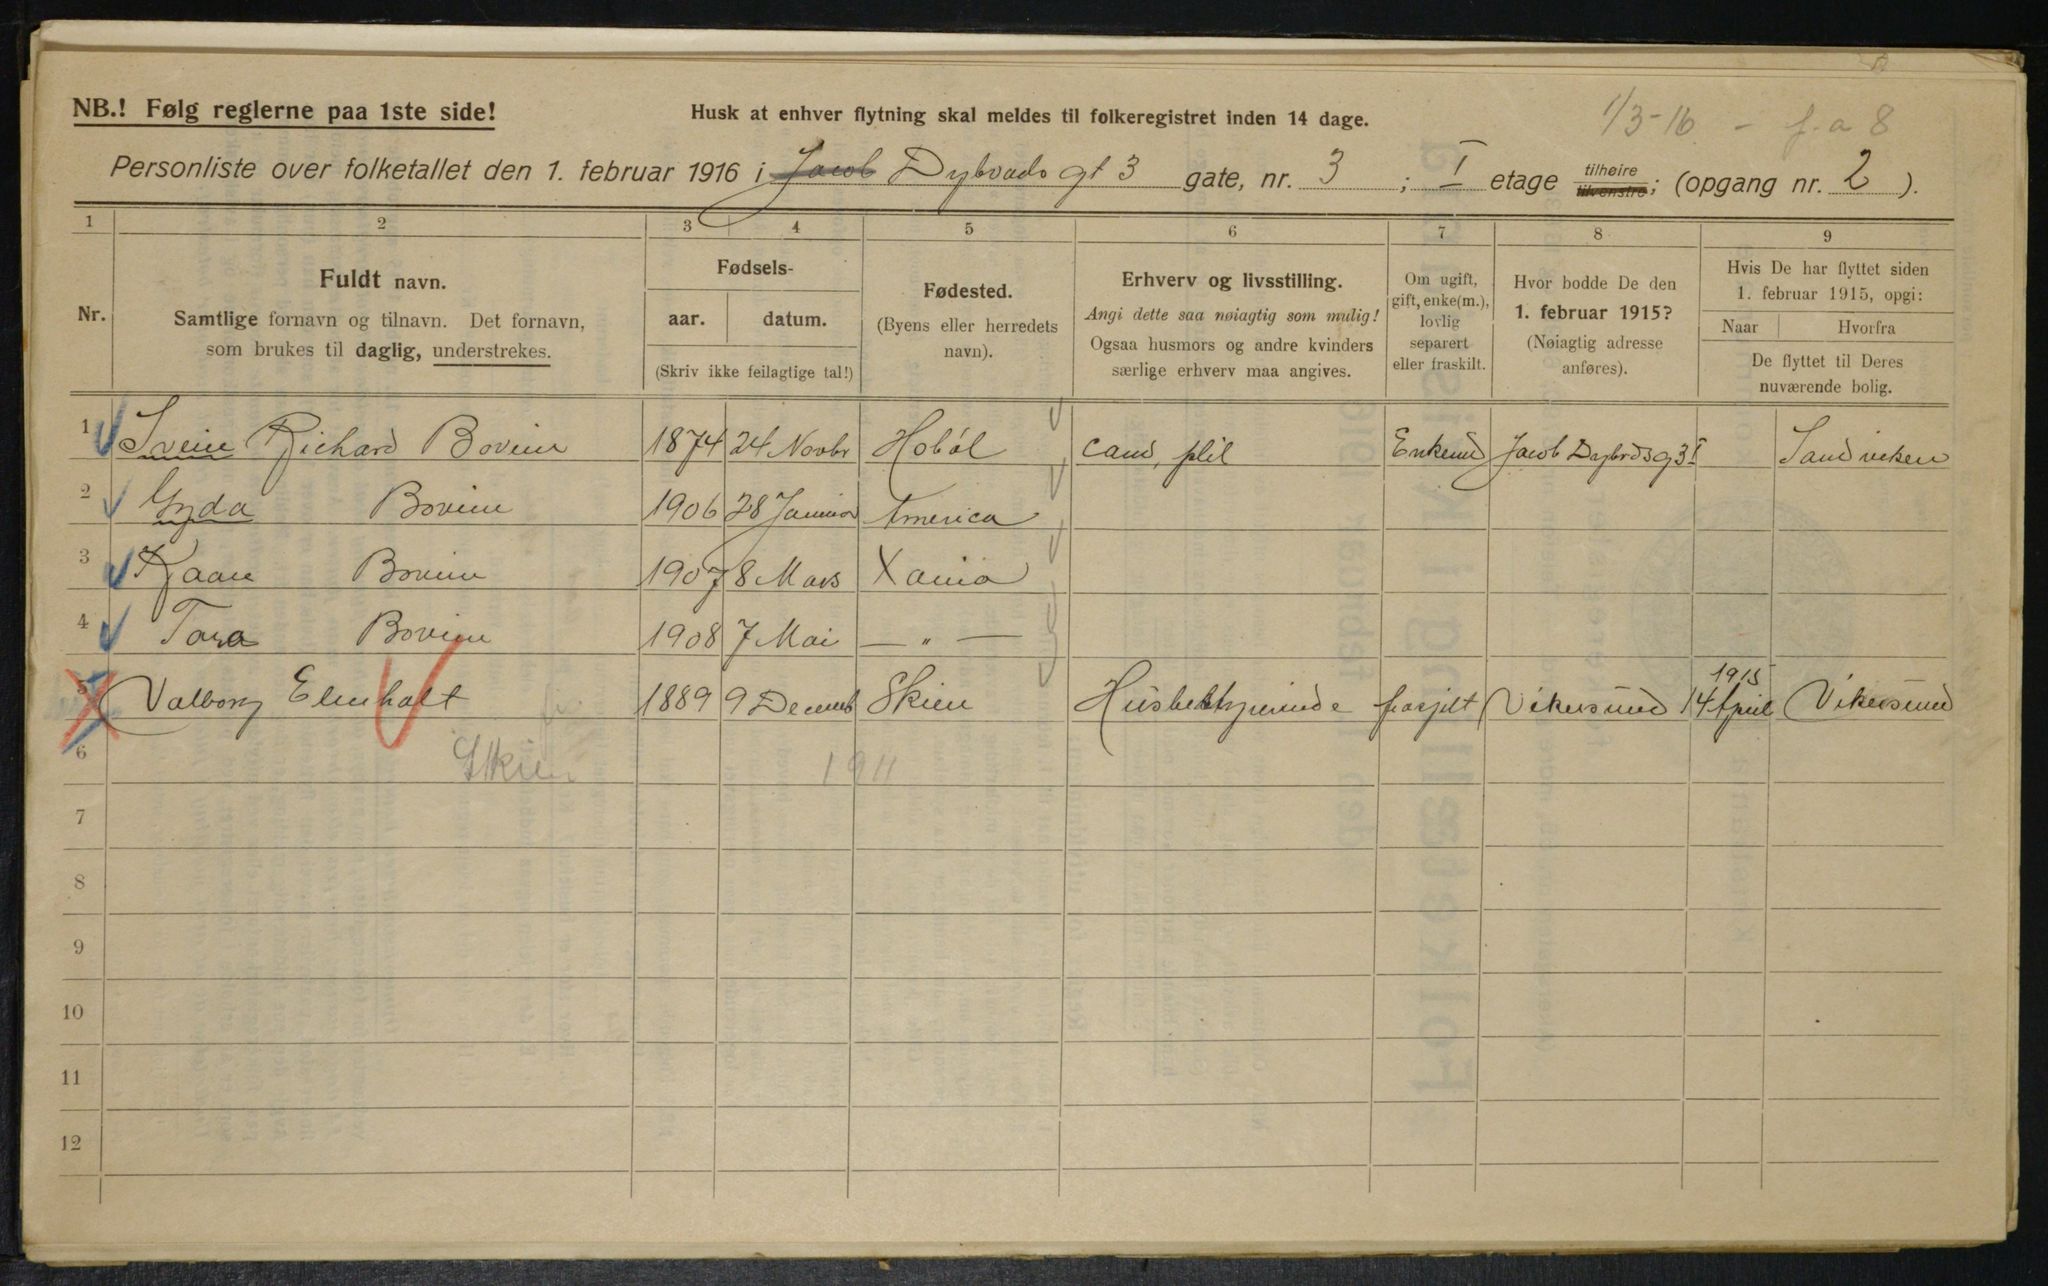 1/3-16 - f. a 8
NB.! Følg reglerne paa 1ste side! Husk at enhver flytning skal meldes til folkeregistret inden 14 dage.
Personliste over folketallet den 1. februar 1916 i Jacob Dybvads gt 3 gate, nr. 3 ; I etage tilhøire tilvenstre; (opgang nr. 2 ).
1 2 3 4 5 6 7 8 9
Nr.
Fuldt navn.
Samtlige fornavn og tilnavn. Det fornavn,
som brukes til daglig, understrekes.
Fødsels-
aar. datum.
(Skriv ikke feilagtige tal!)
Fødested.
(Byens eller herredets
navn).
Erhverv og livsstilling.
Angi dette saa nøiagtig som mulig!
Ogsaa husmors og andre kvinders
særlige erhverv maa angives.
Om ugift,
gift, enke(m.),
lovlig
separert
eller fraskilt.
Hvor bodde De den
1. februar 1915?
(Nøiagtig adresse
anføres).
Hvis De har flyttet siden
1. februar 1915, opgi:
Naar Hvorfra
De flyttet til Deres
nuværende bolig.
1 Svein Richard Bovim 1874 24 Novbr Hobøl cand. phil Enkemd Jacob Dybvdsg 3 I Sandviken
2 Gyda Bovim 1906 28 Januar America
3 Kaare Bovim 1907 8 Mars Xania
4 Tora Bovim 1908 7 Mai — „ —
5 Valborg Elmholt 1889 9 Decemb Skien Husbestyrerinde frasjilt Vikersund 1915 14 April Vikersund
6 Skien 1911
7
8
9
10
11
12